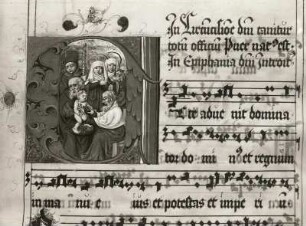 In Octava hoc dni canitur
totū officiū Puer nat' est.
In Epiphania dni Introit'
cce adue nit domina
tor do mi n' et regnum
in ma nu e ius et potestas et impe ri um